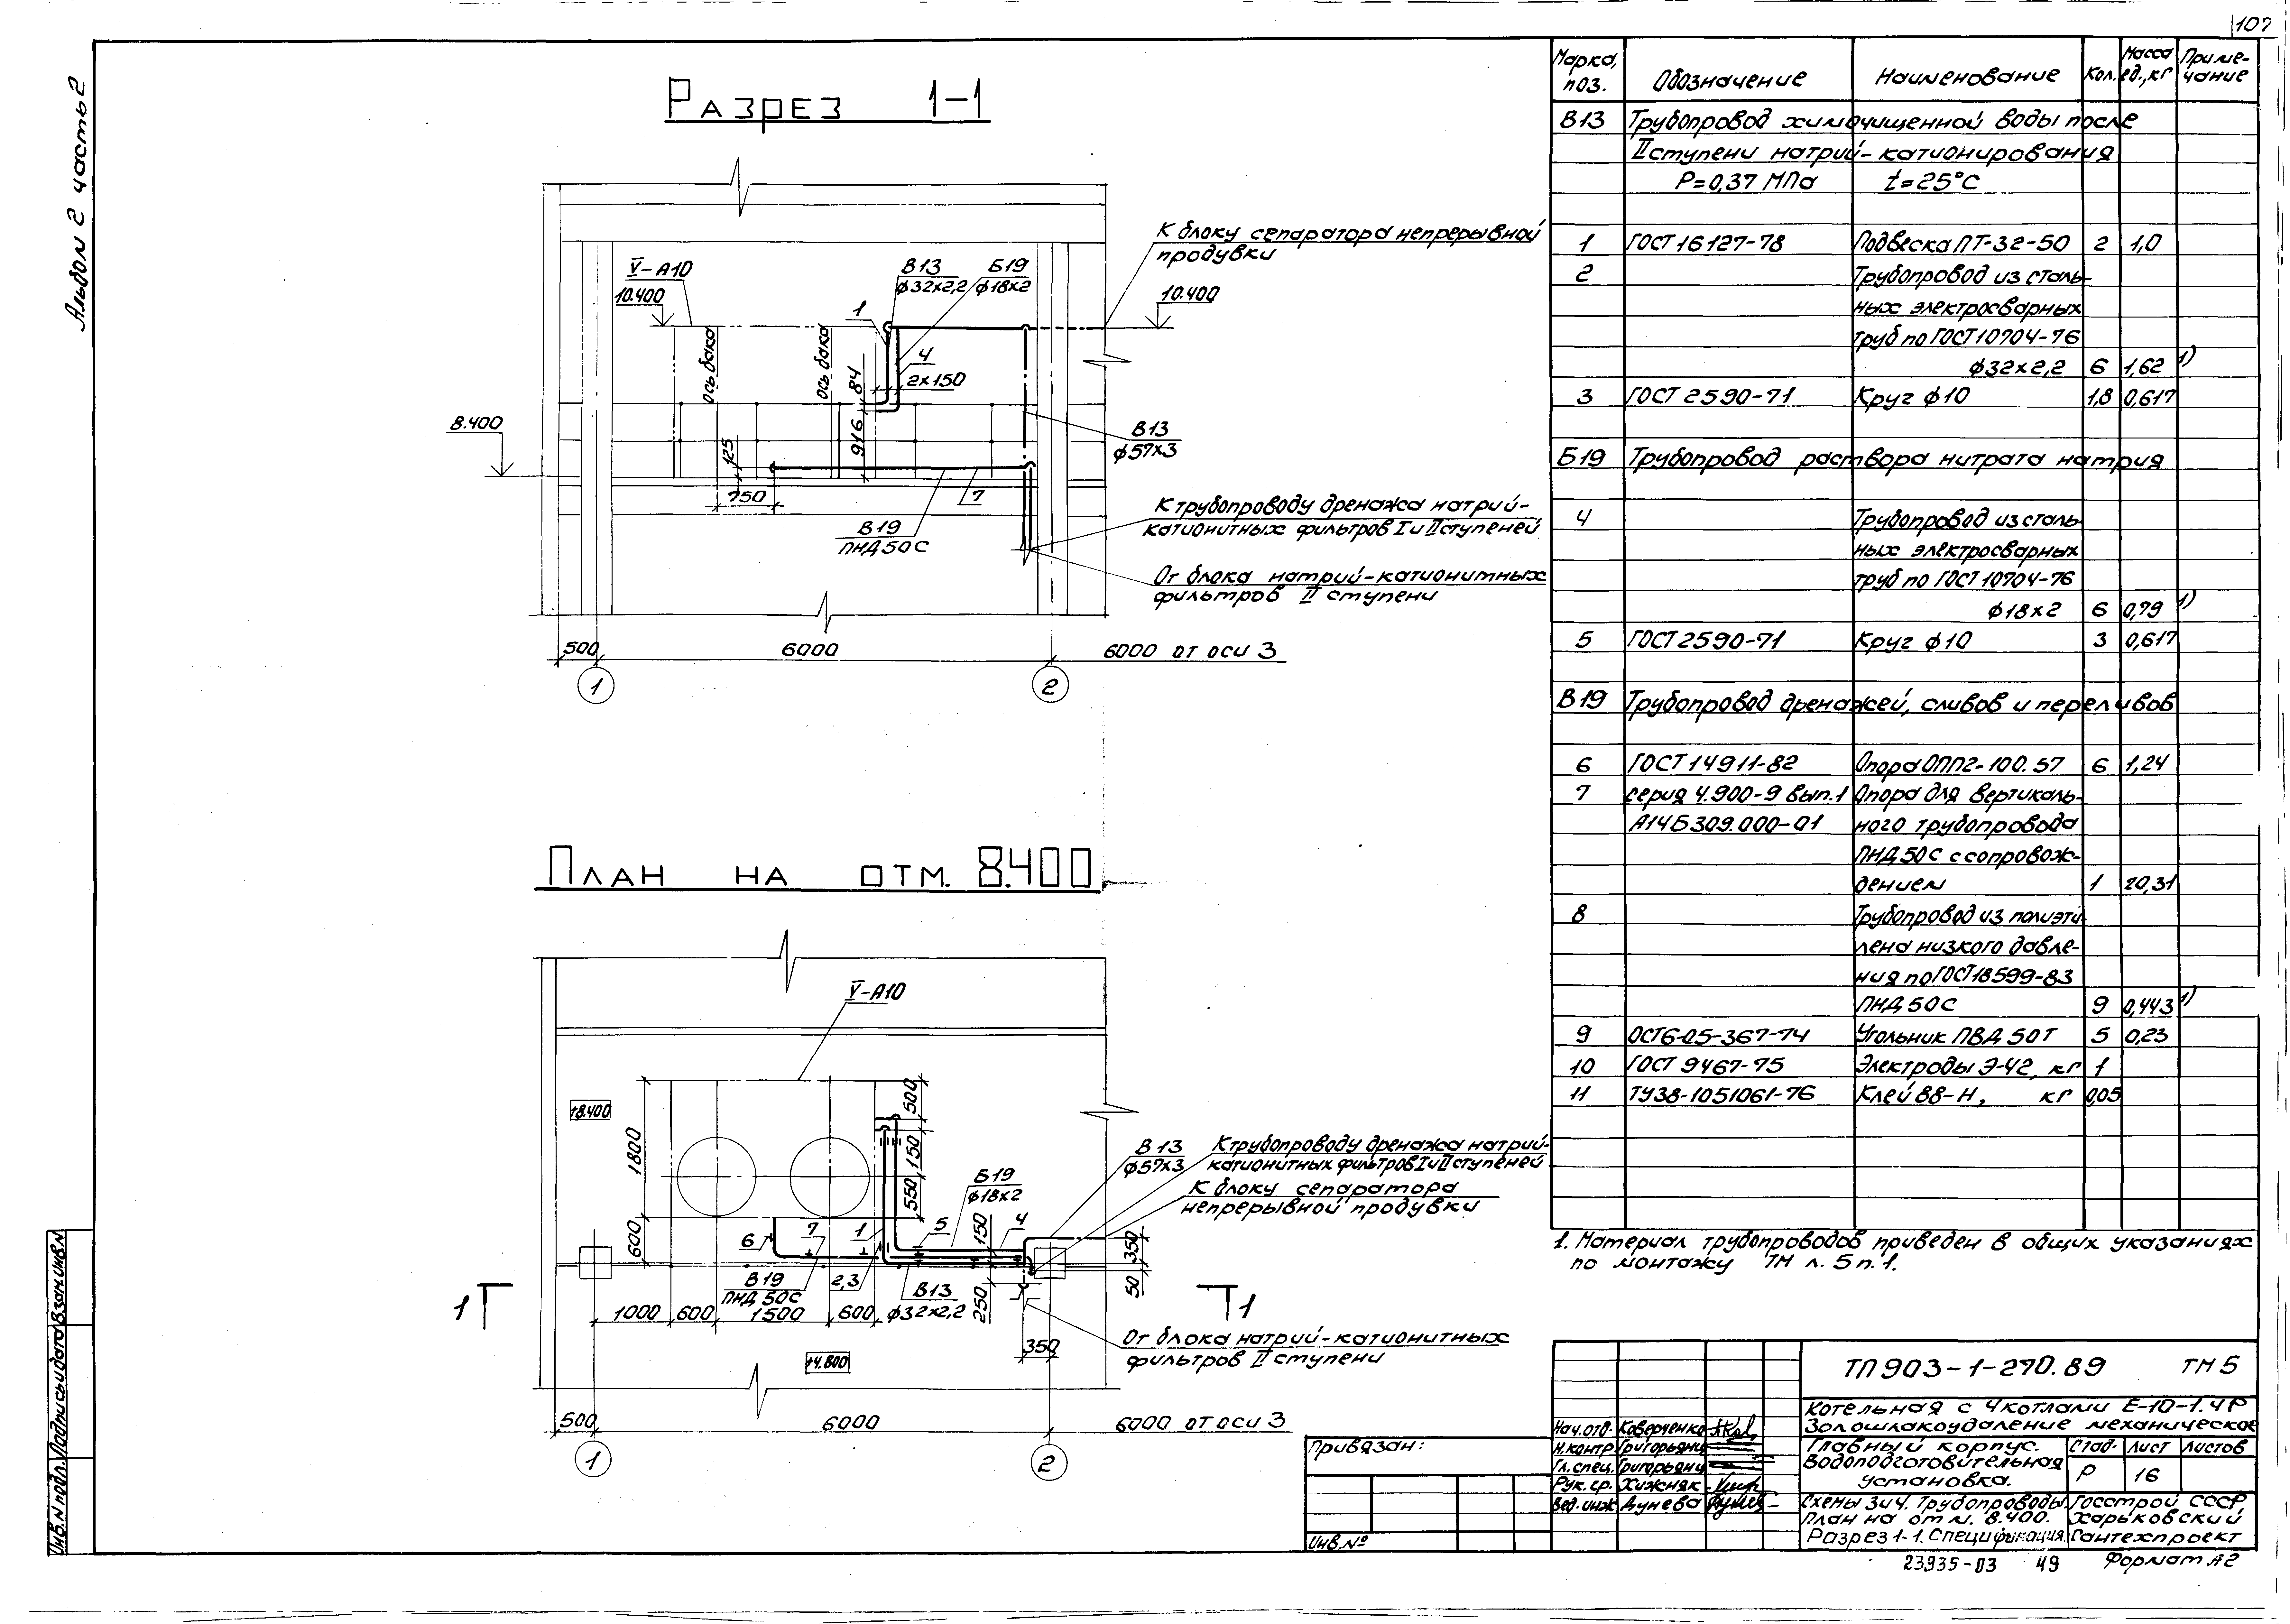 107
Альбом 2 часть 2
Разрез 1-1
К блоку сепаратора непрерывной
продувки
V-А10
В13
ф32х2,2
Б19
ф18х2
10.400
10.400
1
ось бака
ось бака
84
4
2х150
916
8.400
125
В13
ф57х3
750
7
В19
ПНД 50С
К трубопроводу дренажа натрий-
катионитных фильтров I и II ступеней
От блока натрий-катионитных
фильтров II ступени
500
6000
6000 от оси 3
1
2
План на отм. 8.400
V-А10
+8.400
1800
600
500
150
550
Б19
ф18х2
В13
ф57х3
К трубопроводу дренажа натрий-
катионитных фильтров I и II ступеней
К блоку сепаратора
непрерывной продувки
6
7
1
5
150
4
350
50
В19
ПНД 50С
2,3
В13
ф32х2,2
250
1
1
1000
600
1500
600
350
От блока натрий-катионитных
фильтров II ступени
+4.800
500
6000
6000 от оси 3
1
2
Марка, поз. Обозначение Наименование Кол. Масса ед., кг Приме-чание
В13 Трубопровод химочищенной воды после
II ступени натрий-катионирования
Р=0,37 МПа t=25°С
1 ГОСТ 16127-78 Подвеска ПТ-32-50 2 1,0
2 Трубопровод из сталь-
ных электросварных
труб по ГОСТ 10704-76
ф32х2,2 6 1,62 1)
3 ГОСТ 2590-71 Круг ф10 1,8 0,617
Б19 Трубопровод раствора нитрата натрия
4 Трубопровод из сталь-
ных электросварных
труб по ГОСТ 10704-76
ф18х2 6 0,79 1)
5 ГОСТ 2590-71 Круг ф10 3 0,617
В19 Трубопровод дренажей, сливов и переливов
6 ГОСТ 14911-82 Опора ОПП2-100.57 6 1,24
7 серия 4.900-9 вып.1 Опора для вертикаль-
А14Б309.000-01 ного трубопровода
ПНД 50С с сопровож-
дением 1 20,31
8 Трубопровод из полиэти-
лена низкого давле-
ния по ГОСТ 18599-83
ПНД 50С 9 0,443 1)
9 ОСТ6-05-367-74 Угольник ПВД 50Т 5 0,23
10 ГОСТ 9467-75 Электроды Э-42, кг 1
11 ТУ38-1051061-76 Клей 88-Н, кг 0,05
1. Материал трубопроводов приведен в общих указаниях
по монтажу ТМ л. 5 п. 1.
ТП 903-1-270.89 ТМ 5
Котельная с 4 котлами Е-10-1.4Р
Золошлакоудаление механическое
Нач. отд. Коверченко
Н.контр Григорьянц
Гл. спец. Григорьянц
Рук. гр. Хижняк
Вед. инж Дунева
Главный корпус.
Водоподготовительная
установка.
Стад. Лист Листов
Р 16
Схемы 3 и 4. Трубопроводы.
План на отм. 8.400.
Разрез 1-1. Спецификация.
Госстрой СССР
Харьковский
Сантехпроект
Привязан:
Инв. №
Взам. инв. N
Подпись и дата
Инв. N подл.
23935-03 49 Формат А2